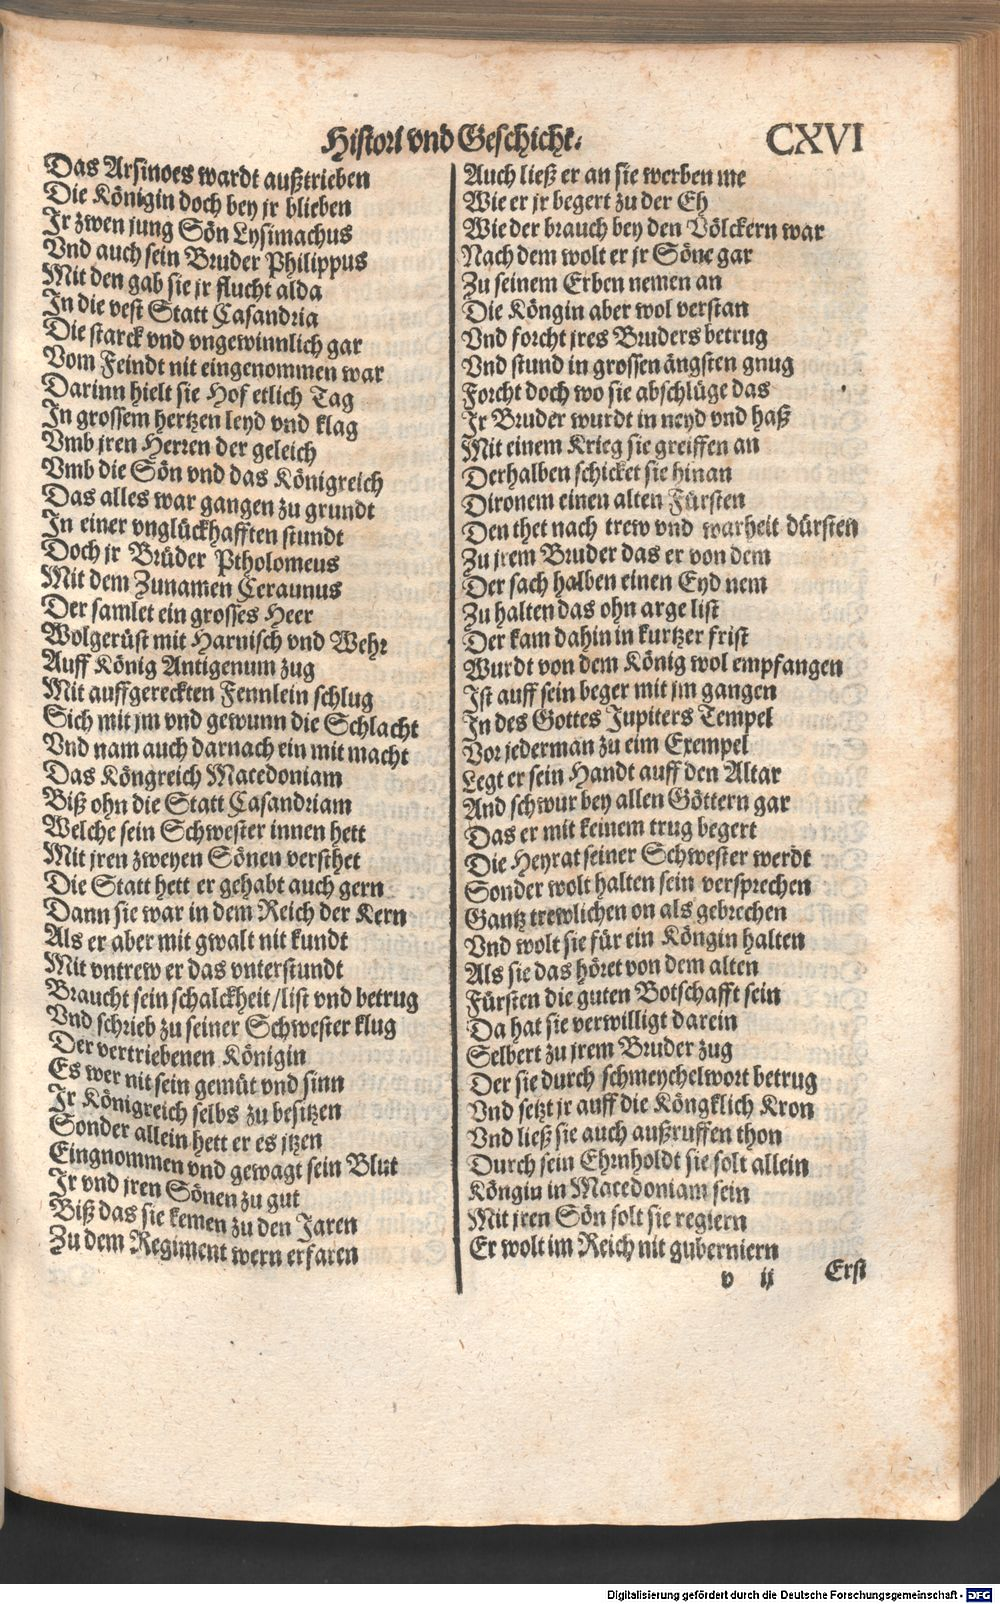 Histori vnd Geschicht.
CXVI
Das Arsinoes wardt außtrieben
Die Königin doch bey jr blieben
Jr zwen jung Sön Lysimachus
Vnd auch sein Bruder Philippus
Mit den gab sie jr flucht alda
In die vest Statt Casandria
Die starck vnd vngewinnlich gar
Vom Feindt nit eingenommen war
Darinn hielt sie Hof etlich Tag
In grossem hertzen leyd vnd klag
Vmb jren Herren der geleich
Vmb die Sön vnd das Königreich
Das alles war gangen zu grundt
In einer vnglückhafften stundt
Doch jr Brüder Ptholomeus
Mit dem Zunamen Ceraunus
Der samlet ein grosses Heer
Wolgerüst mit Harnisch vnd Wehr
Auff König Antigenum zug
Mit auffgereckten Fennlein schlug
Sich mit jm vnd gewunn die Schlacht
Vnd nam auch darnach ein mit macht
Das Köngreich Macedoniam
Biß ohn die Statt Casandriam
Welche sein Schwester innen hett
Mit jren zweyen Sönen versthet
Die Statt hett er gehabt auch gern
Dann sie war in dem Reich der Kern
Als er aber mit gwalt nit kundt
Mit vntrew er das vnterstundt
Braucht sein schalckheit/list vnd betrug
Vnd schrieb zu seiner Schwester klug
Der vertriebenen Königin
Es wer nit sein gemüt vnd sinn
Jr Königreich selbs zu besitzen
Sonder allein hett er es jtzen
Eingnommen vnd gewagt sein Blut
Jr vnd jren Sönen zu gut
Biß das sie kemen zu den Jaren
Zu dem Regiment wern erfaren
Auch ließ er an sie werben me
Wie er jr begert zu der Eh
Wie der brauch bey den Völckern war
Nach dem wolt er jr Söne gar
Zu seinem Erben nemen an
Die Köngin aber wol verstan
Vnd forcht jres Bruders betrug
Vnd stund in grossen ängsten gnug
Forcht doch wo sie abschlüge das
Jr Bruder wurdt in neyd vnd haß
Mit einem Krieg sie greiffen an
Derhalben schicket sie hinan
Dironem einen alten Fürsten
Den thet nach trew vnd warheit dürsten
Zu jrem Bruder das er von dem
Der sach halben einen Eyd nem
Zu halten das ohn arge list
Der kam dahin in kurtzer frist
Wurdt von dem König wol empfangen
Ist auff sein beger mit jm gangen
In des Gottes Jupiters Tempel
Vor jederman zu eim Exempel
Legt er sein Handt auff den Altar
And schwur bey allen Göttern gar
Das er mit keinem trug begert
Die Heyrat seiner Schwester werdt
Sonder wolt halten sein versprechen
Gantz trewlichen on als gebrechen
Vnd wolt sie für ein Köngin halten
Als sie das höret von dem alten
Fürsten die guten Botschafft sein
Da hat sie verwilligt darein
Selbert zu jrem Bruder zug
Der sie durch schmeychelwort betrug
Vnd setzt jr auff die Köngklich Kron
Vnd ließ sie auch außruffen thon
Durch sein Ehrnholdt sie solt allein
Köngin in Macedoniam sein
Mit jren Sön solt sie regiern
Er wolt im Reich nit guberniern
v ij
Erst
Digitalisierung gefördert durch die Deutsche Forschungsgemeinschaft - DFG